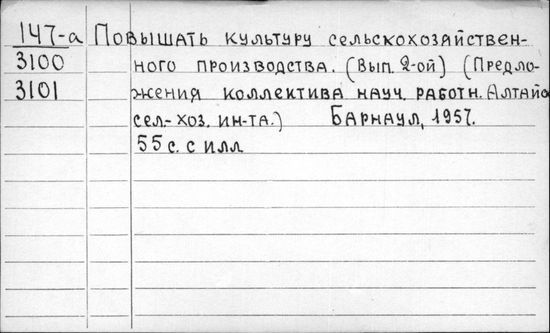 147-а Повышать культуру сельскохозяйствен-
3100 ного производства. (Вып. 2-ой) (Предло-
3101 жения коллектива науч. работн. Алтайс
сел-хоз. ин-та.) Барнаул, 1957.
55 с. с илл